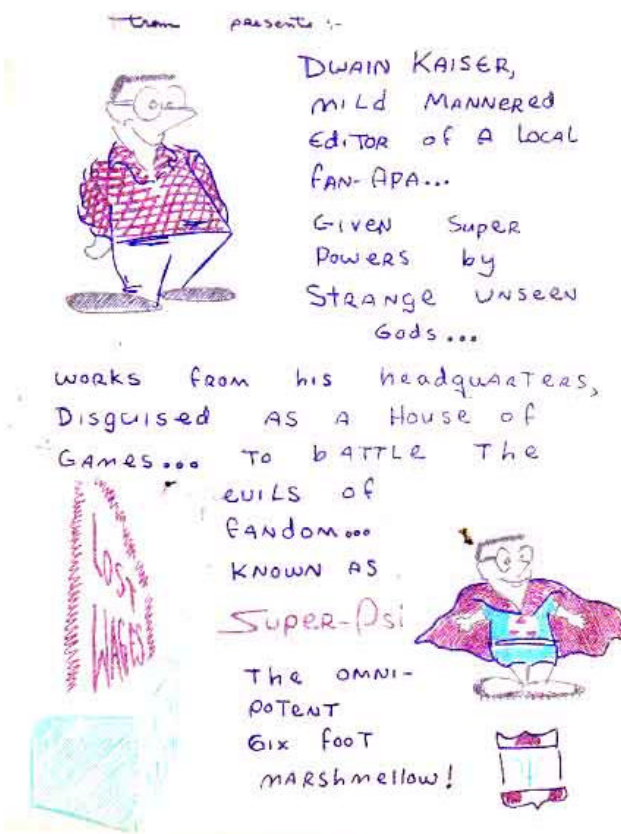 presents :-
DWAIN KAISER,
MILd MANNERED
EdiTOR of A LOCAL
fAN-APA...
GIVEN Super
POWERS by
STRANge UNSEEN
Gods...
WORKS fROM his headquARTERS,
Disguised AS A House of
GAMes... To bATTLe The
eUILS of
fANdom...
KNOWN AS
SUPER-Psi
The OMNI-
POTENT
6ix fooT
MARShmellow!
LOST
WAGES